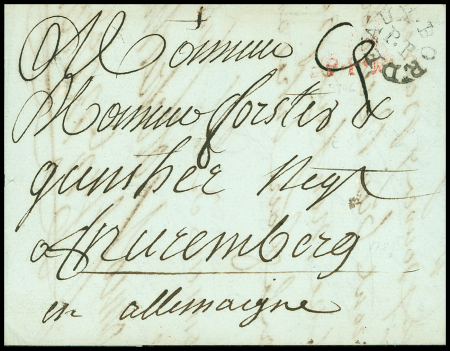 Monsieur
Monsieur forster &
gunther Negt
a nuremberg
en allemaigne